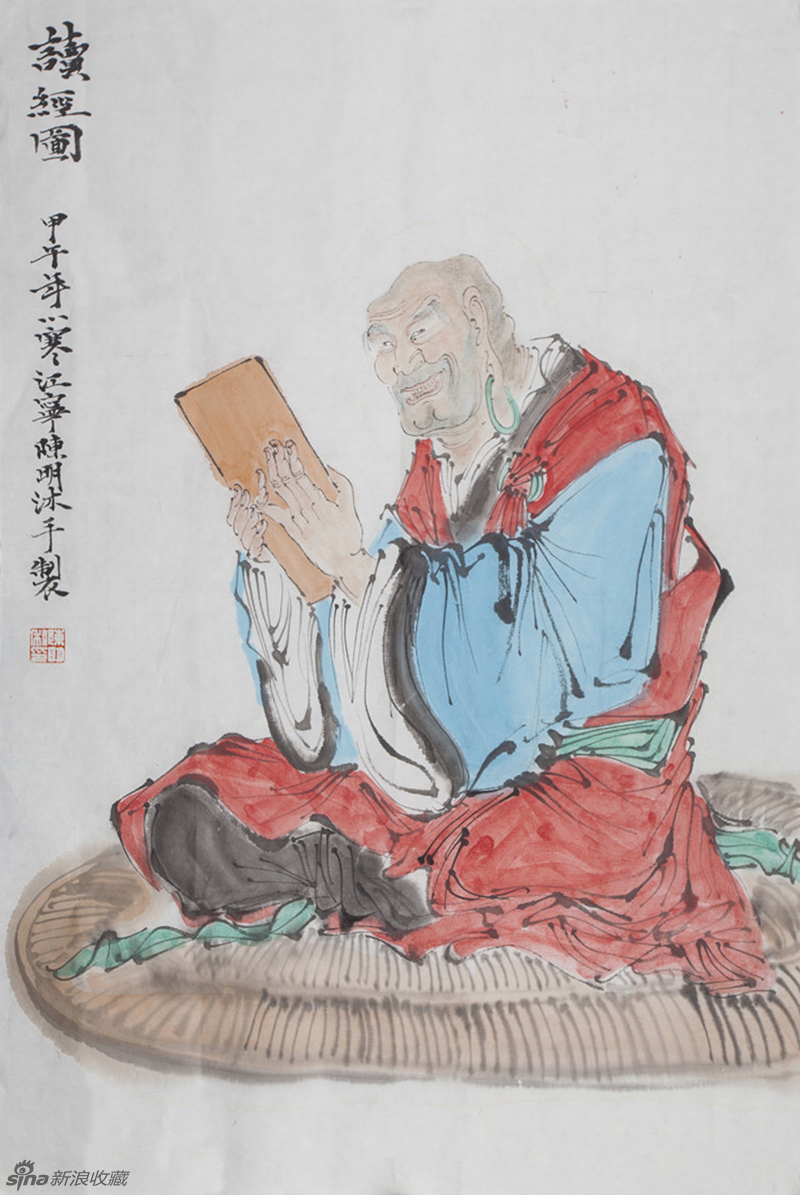 讀經圖
甲午年小寒江寧陳明沐手製
sina新浪收藏